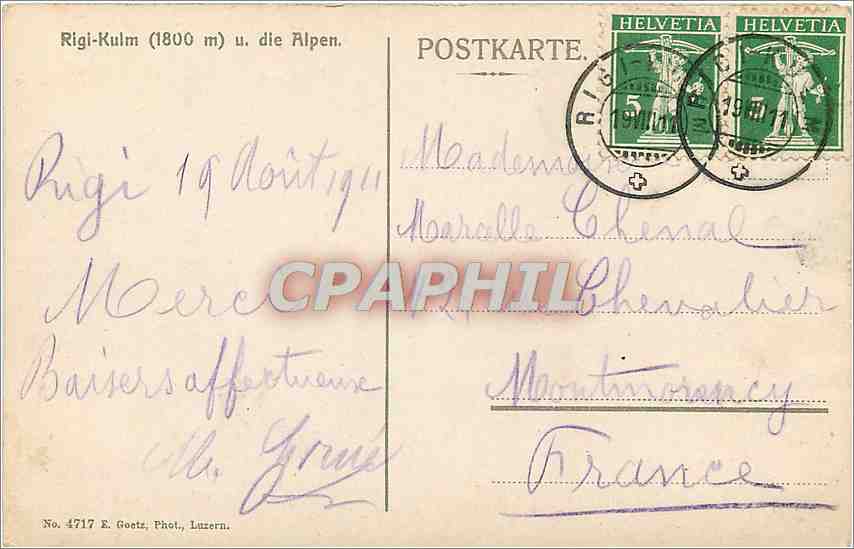 Rigi-Kulm (1800 m) u. die Alpen.
POSTKARTE.
HELVETIA
HELVETIA
5
5
RIGI-
19 VIII 11
19 VIII 11
Rigi 19 Août 1911
Merci
Baisers affectueux
Mademoiselle
Marcelle Chenal
Chevalier
Montmorency
France
CPAPHIL
No. 4717 E. Goetz, Phot., Luzern.